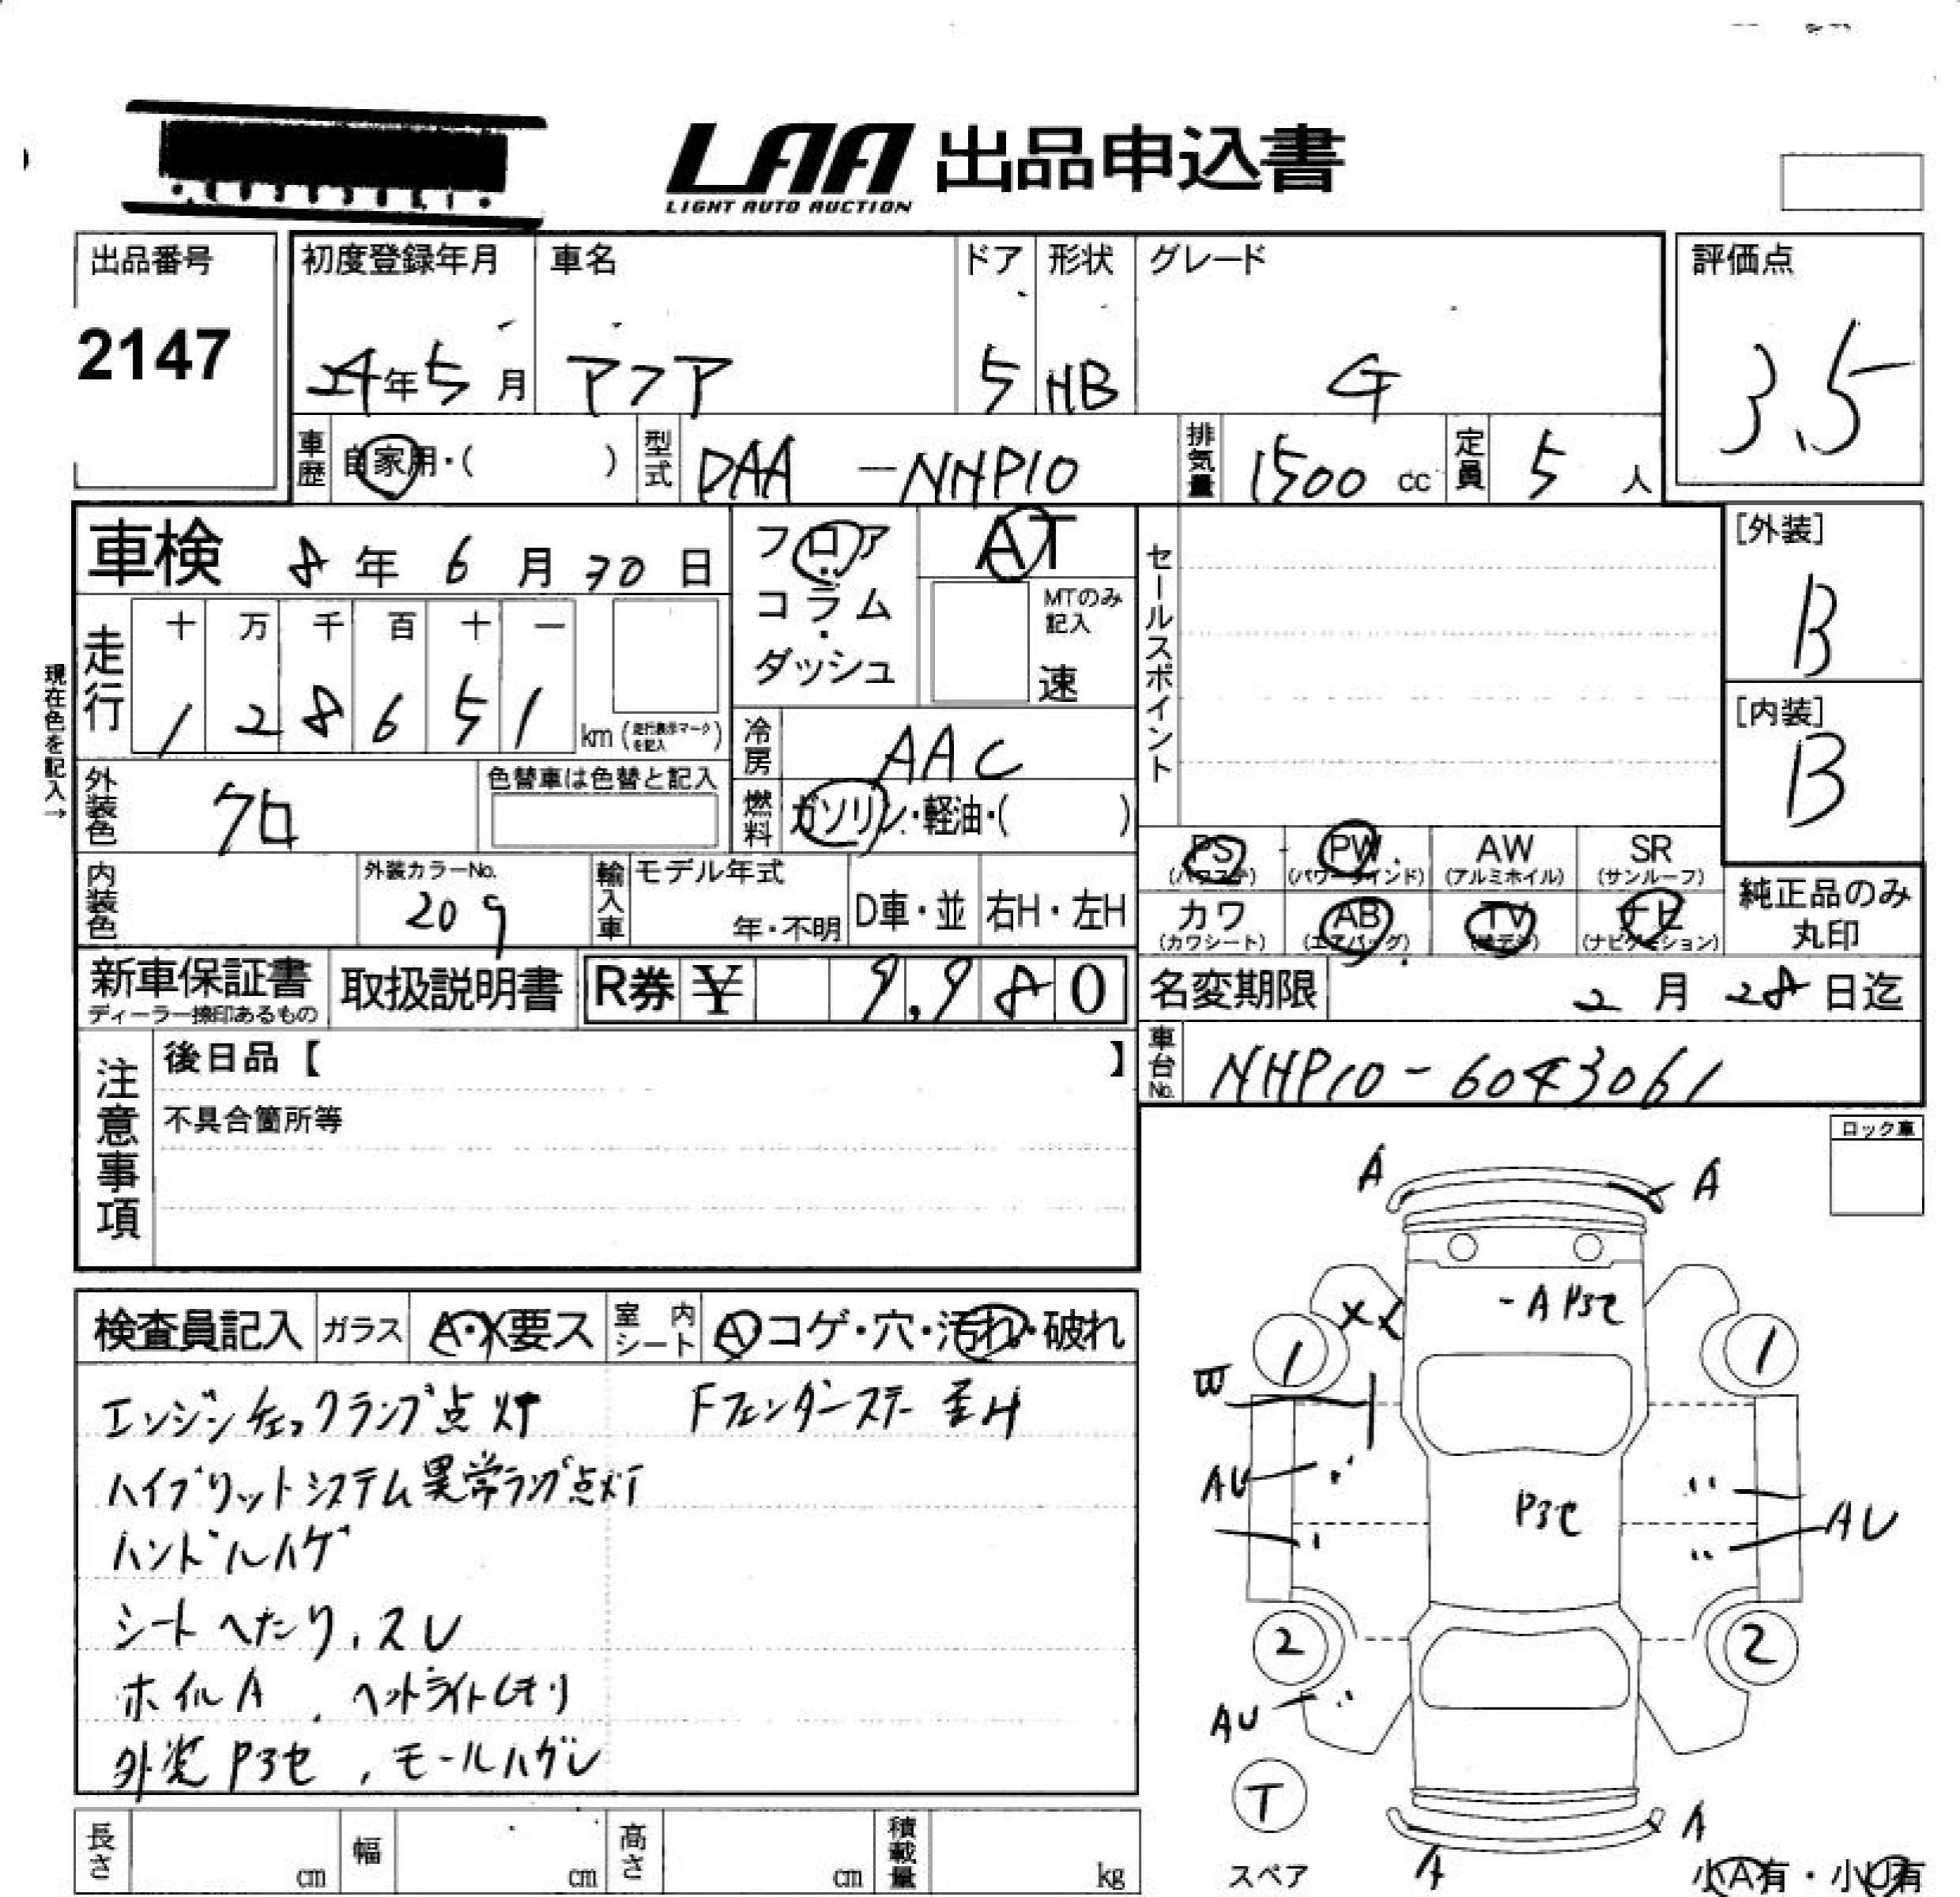 LAA 出品申込書
LIGHT AUTO AUCTION
出品番号
2147
初度登録年月
24年5月
車名
アクア
ドア
5
形状
HB
グレード
G
評価点
3.5
車歴 自家用・( )
型式 DAA-NHP10
排気量 1500 cc
定員 5 人
車検 8年6月30日
フロア・コラム・ダッシュ
AT
MTのみ記入
速
セールスポイント
[外装]
B
[内装]
B
現在色を記入→
走行
十 万 千 百 十 一
1 2 8 6 5 1 km (走行表示マークを記入)
冷房 AAC
燃料 ガソリン・軽油・( )
外装色 クロ
色替車は色替と記入
内装色
外装カラーNo.
209
輸入車
モデル年式
年・不明
D車・並
右H・左H
PS (パワステ)
PW (パワーウインド)
AW (アルミホイル)
SR (サンルーフ)
カワ (カワシート)
AB (エアバッグ)
TV
ナビ (ナビゲーション)
純正品のみ丸印
新車保証書
ディーラー捺印あるもの
取扱説明書
R券 ¥ 9,980
名変期限 2月28日迄
車台No. NHP10-6043061
注意事項
後日品【 】
不具合箇所等
ロック車
検査員記入
ガラス A・X要ス
室内シート A コゲ・穴・汚れ・破れ
エンジンチェックランプ点灯 Fフェンダーステー歪H
ハイブリットシステム異常ランプ点灯
ハンドルハゲ
シートへたり、スレ
ホイルA、ヘットライトくもり
外装Pヨセ、モールハゲレ
A
A
X
- A Pヨセ
1
1
AU
Pヨセ
AU
2
2
AU
T
スペア
A
A
小A有・小U有
長さ cm
幅 cm
高さ cm
積載量 kg